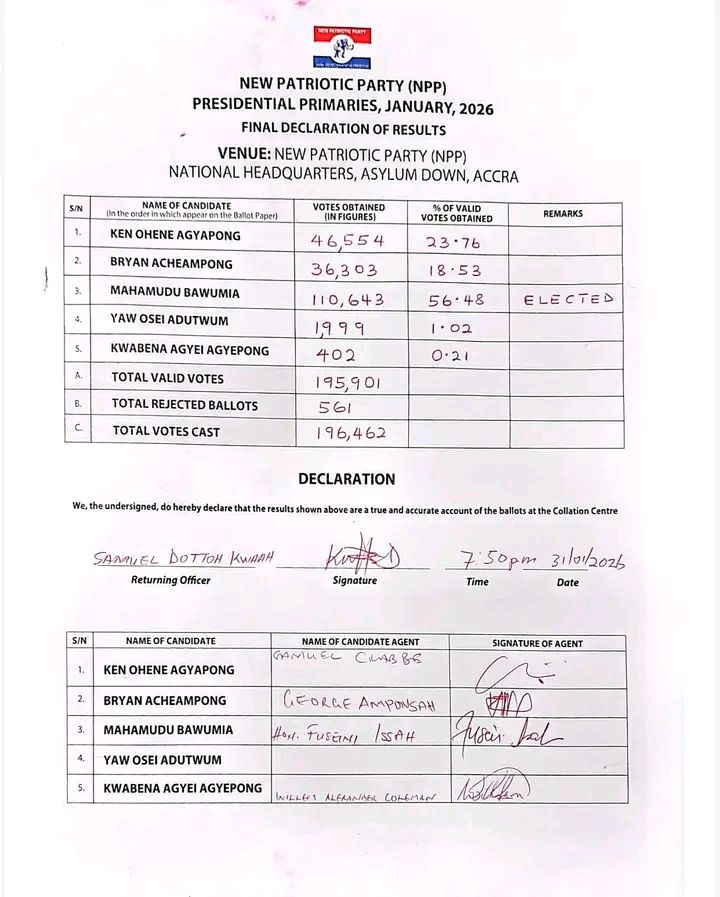 NEW PATRIOTIC PARTY
NEW PATRIOTIC PARTY (NPP)
PRESIDENTIAL PRIMARIES, JANUARY, 2026
FINAL DECLARATION OF RESULTS
VENUE: NEW PATRIOTIC PARTY (NPP)
NATIONAL HEADQUARTERS, ASYLUM DOWN, ACCRA
S/N NAME OF CANDIDATE (In the order in which appear on the Ballot Paper) VOTES OBTAINED (IN FIGURES) % OF VALID VOTES OBTAINED REMARKS
1. KEN OHENE AGYAPONG 46,554 23.76
2. BRYAN ACHEAMPONG 36,303 18.53
3. MAHAMUDU BAWUMIA 110,643 56.48 ELECTED
4. YAW OSEI ADUTWUM 1,999 1.02
5. KWABENA AGYEI AGYEPONG 402 0.21
A. TOTAL VALID VOTES 195,901
B. TOTAL REJECTED BALLOTS 561
C. TOTAL VOTES CAST 196,462
DECLARATION
We, the undersigned, do hereby declare that the results shown above are a true and accurate account of the ballots at the Collation Centre
SAMUEL DOTTOH KWAAH 7:50pm 31/01/2026
Returning Officer Signature Time Date
S/N NAME OF CANDIDATE NAME OF CANDIDATE AGENT SIGNATURE OF AGENT
1. KEN OHENE AGYAPONG SAMUEL CRABBE
2. BRYAN ACHEAMPONG GEORGE AMPONSAH
3. MAHAMUDU BAWUMIA HON. FUSEINI ISSAH
4. YAW OSEI ADUTWUM
5. KWABENA AGYEI AGYEPONG ALEXANDER COLEMAN